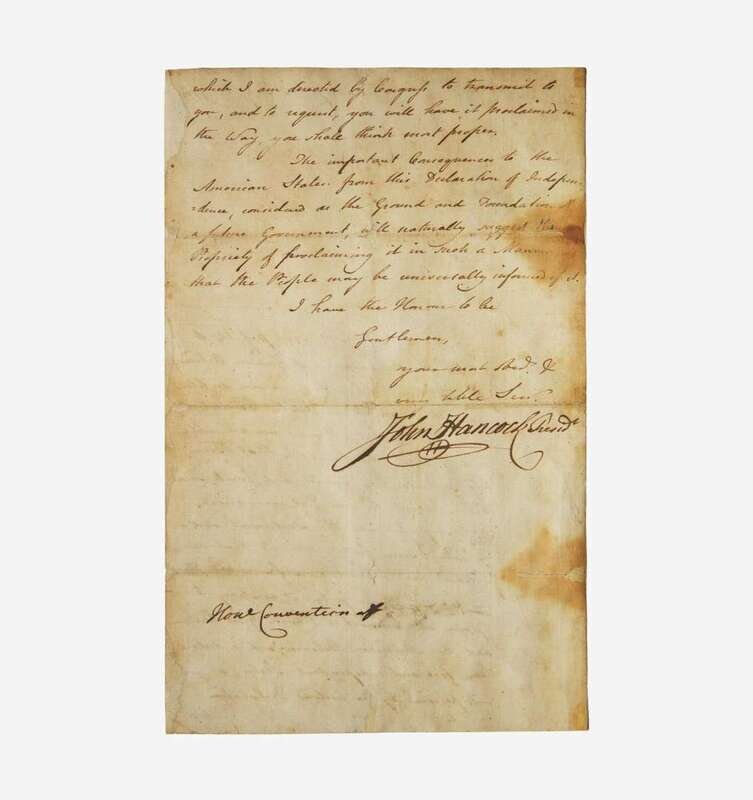 which I am directed by Congress to transmit to
you, and to request, you will have it proclaimed in
the Way, you shall think most proper.
The important Consequences to the
American States from this Declaration of Indepen-
-dence, considered as the Ground and Foundation of
a future Government, will naturally suggest the
Propriety of proclaiming it in such a Manner
that the People may be universally informed of it.
I have the Honour to be
Gentlemen,
your most Obed. &
very hble Ser.
John Hancock Presid.
Honl Convention of